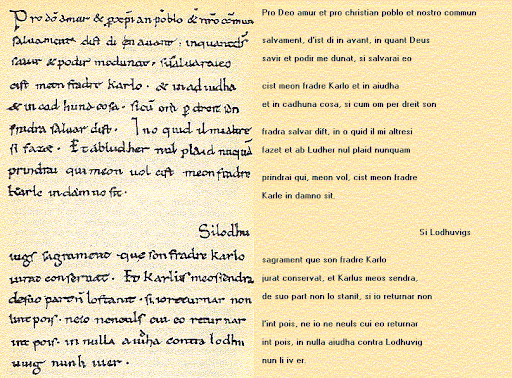 Pro dō amur & p xp̄ian poblo & nr̄o cōmun
saluament . dist di en auant . inquantdš
sauir & podir medunat . sisaluaraieo
cist meon fradre karlo . & in adiudha
& in cad huna cosa . sicū om p dreit son
fradra saluar dist . Ino quid il mialtre
si fazet . Et abludher nul plaid nūquā
prindrai qui meon uol cist meonfradre
karle in damno sit .
Silodhu
uigs sagrament . que son fradre karlo
iurat conseruat . Et karlus meossendra
desuo partn̄ lostanit . si ioreturnar non
lint pois . neio neneuls cui eo returnar
int pois . in nulla aiudha contra lodhu
uuig nunli iuer .
Pro Deo amur et pro christian poblo et nostro commun
salvament, d'ist di in avant, in quant Deus
savir et podir me dunat, si salvarai eo
cist meon fradre Karlo et in aiudha
et in cadhuna cosa, si cum om per dreit son
fradra salvar dift, in o quid il mi altresi
fazet et ab Ludher nul plaid nunquam
prindrai qui, meon vol, cist meon fradre
Karle in damno sit.
Si Lodhuvigs
sagrament que son fradre Karlo
jurat conservat, et Karlus meos sendra,
de suo part non lo stanit, si io returnar non
l'int pois, ne io ne neuls cui eo returnar
int pois, in nulla aiudha contra Lodhuvig
nun li iv er.